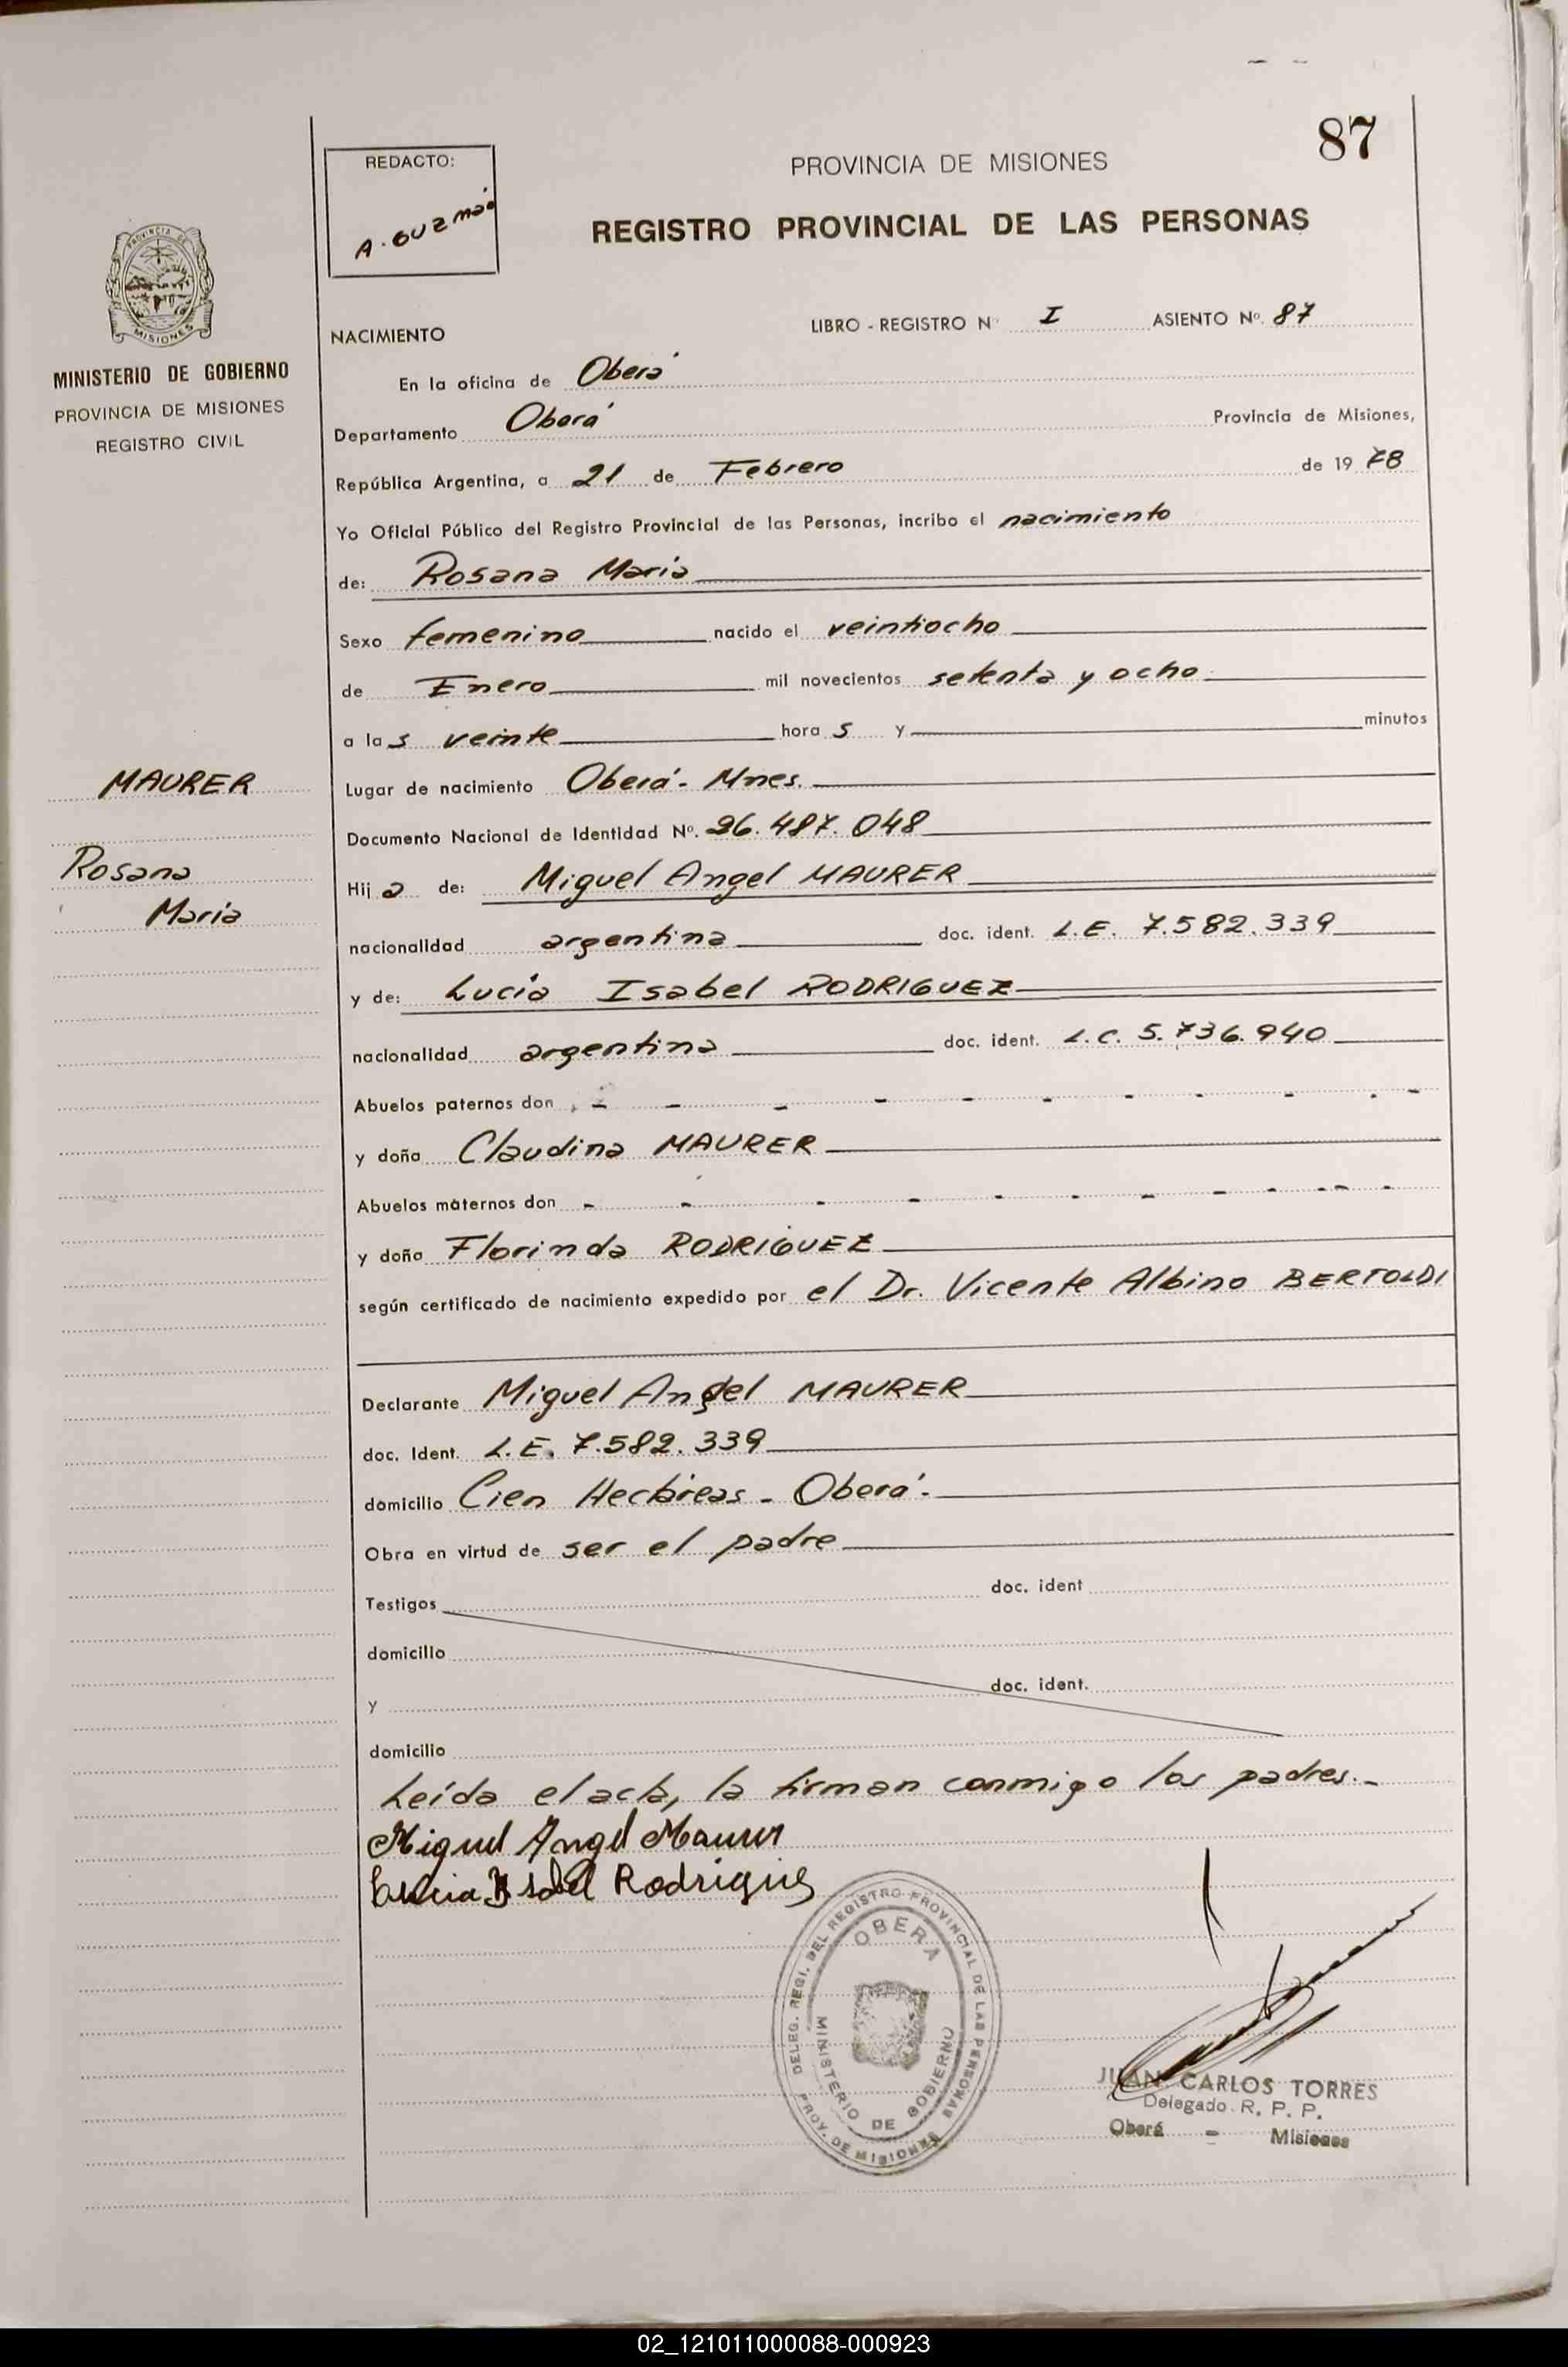 87
REDACTO:
A. GUZMÁN
PROVINCIA DE MISIONES
REGISTRO PROVINCIAL DE LAS PERSONAS
PROVINCIA DE
MISIONES
MINISTERIO DE GOBIERNO
PROVINCIA DE MISIONES
REGISTRO CIVIL
NACIMIENTO LIBRO - REGISTRO Nº I ASIENTO Nº. 87
En la oficina de Oberá
Departamento Oberá Provincia de Misiones,
República Argentina, a 21 de Febrero de 1978
Yo Oficial Público del Registro Provincial de las Personas, incribo el nacimiento
de: Rosana María
Sexo femenino nacido el veintiocho
de Enero mil novecientos setenta y ocho
a las veinte horas y minutos
MAURER
Rosana
María
Lugar de nacimiento Oberá - Mnes.
Documento Nacional de Identidad Nº. 26.487.048
Hija de: Miguel Angel MAURER
nacionalidad argentina doc. ident. L.E. 7.582.339
y de: Lucia Isabel RODRIGUEZ
nacionalidad argentina doc. ident. L.C. 5.736.940
Abuelos paternos don - - - - - - - - - -
y doña Claudina MAURER
Abuelos maternos don - - - - - - - - - - -
y doña Florinda RODRIGUEZ
según certificado de nacimiento expedido por el Dr. Vicente Albino BERTOLDI
Declarante Miguel Angel MAURER
doc. Ident. L.E. 7.582.339
domicilio Cien Hectáreas - Oberá.-
Obra en virtud de ser el padre
Testigos doc. ident
domicilio
y doc. ident.
domicilio
Leída el acta, la firman conmigo los padres.-
Miguel Angel Maurer
Lucia Isabel Rodriguez
DELEG. REGI. DEL REGISTRO PROVINCIAL DE LAS PERSONAS
OBERA
MINISTERIO DE GOBIERNO
PROV. DE MISIONES
JUAN CARLOS TORRES
Delegado R. P. P.
Oberá - Misiones
02_121011000088-000923